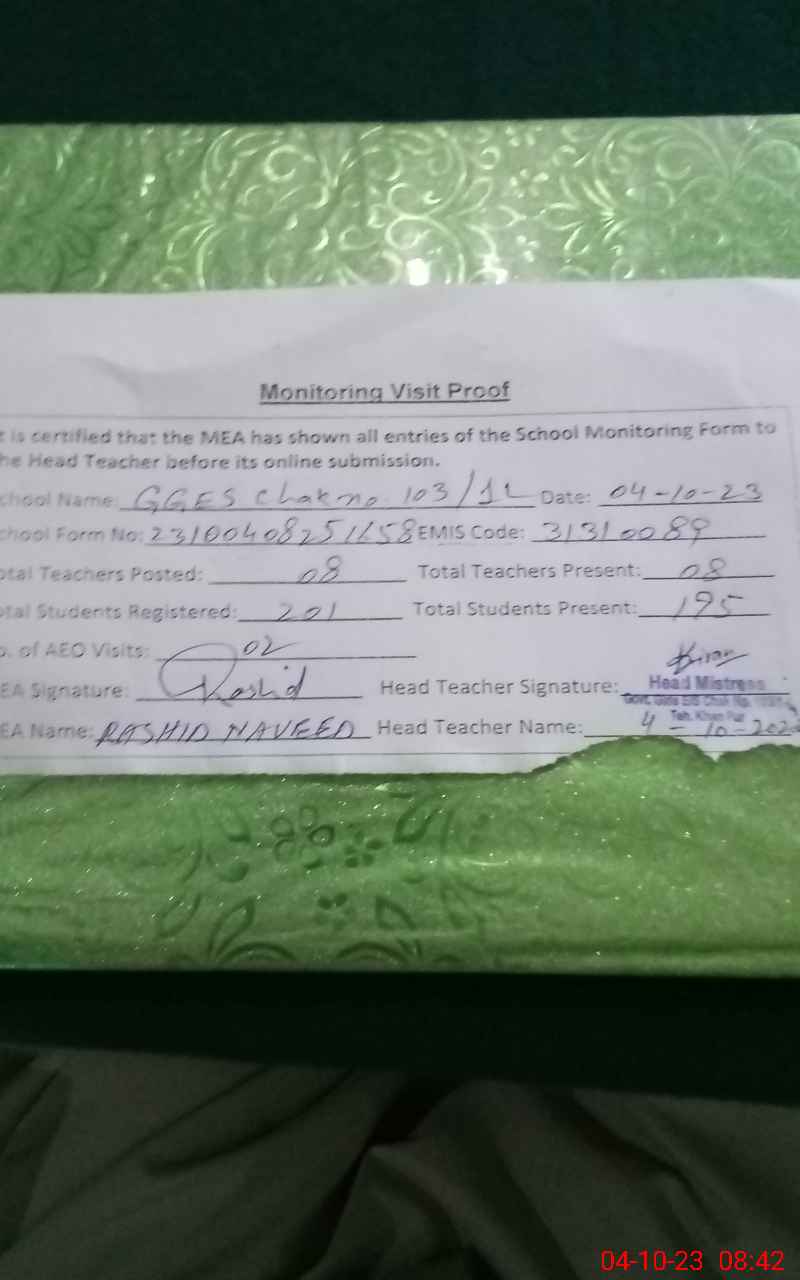 Monitoring Visit Proof
t is certified that the MEA has shown all entries of the School Monitoring Form to
he Head Teacher before its online submission.
chool Name: GGES Chak no. 103/1L Date: 04-10-23
chool Form No: EMIS Code: 31310089
otal Teachers Posted: 08 Total Teachers Present: 08
otal Students Registered: 201 Total Students Present: 195
o. of AEO Visits: 02
EA Signature: Rashid Head Teacher Signature: Kiran
Head Mistress
EA Name: RASHID NAVEED Head Teacher Name:
Teh. Khan Pur
4-10-202
04-10-23 08:42